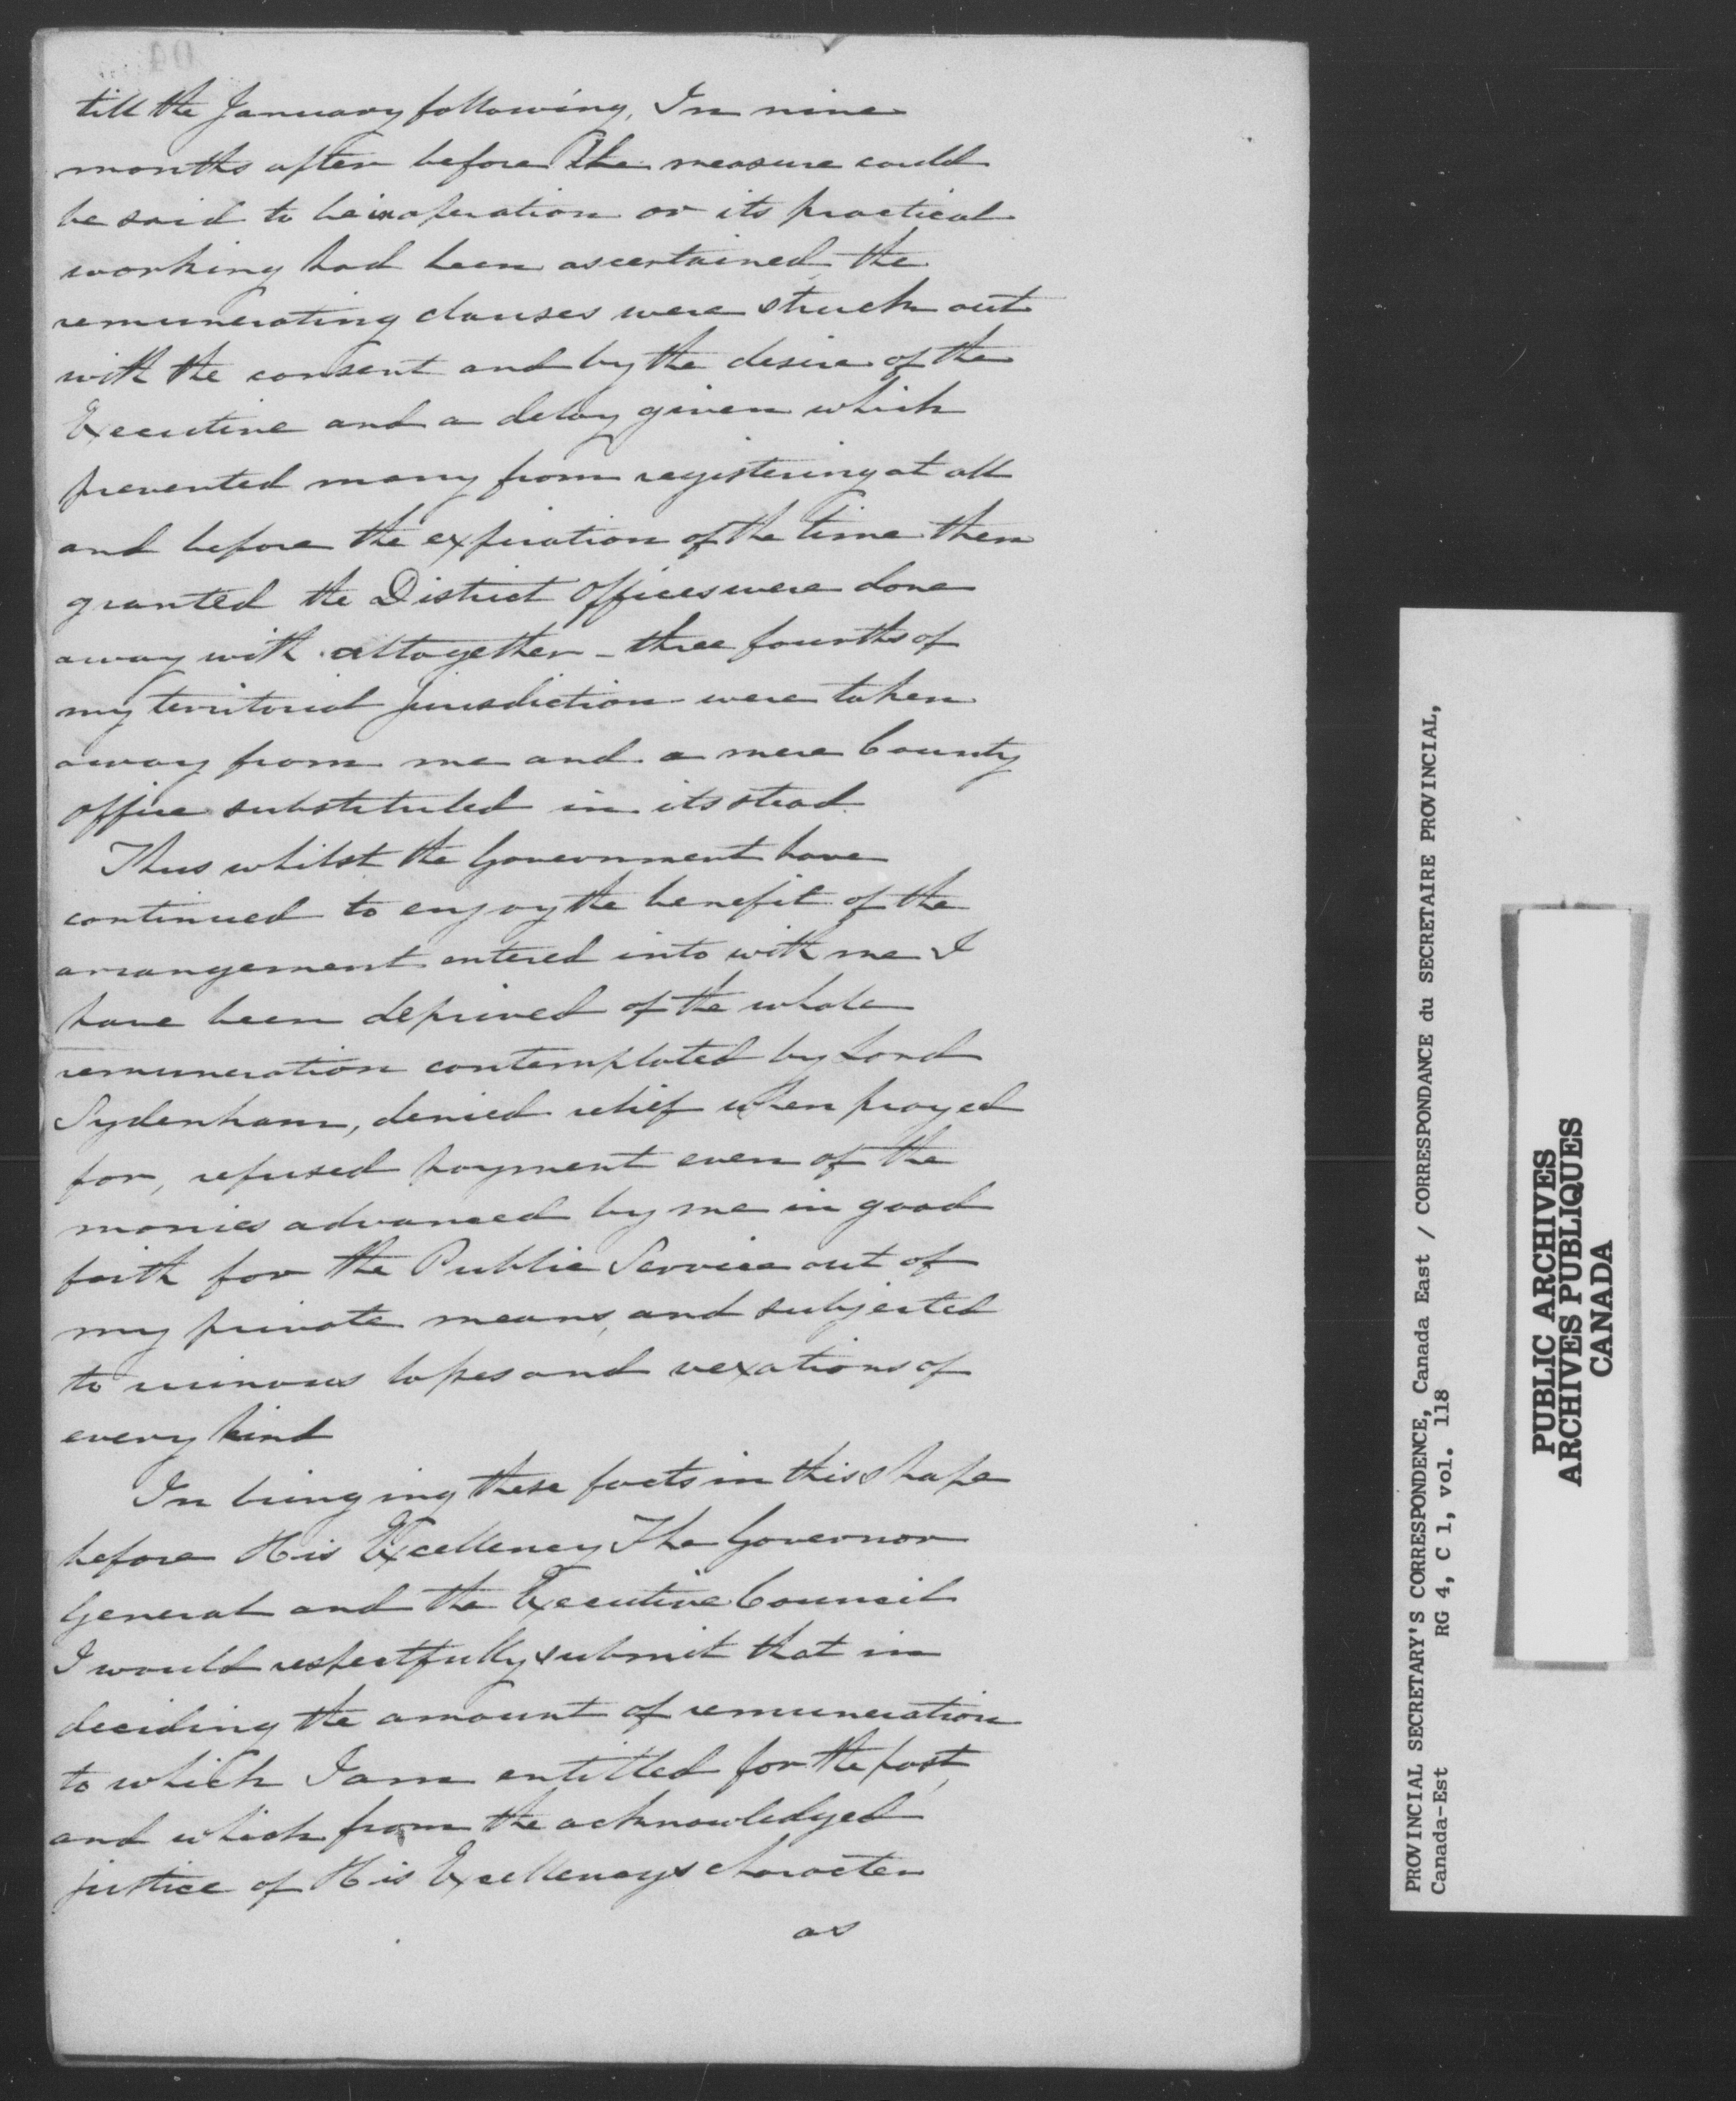 till the January following, In nine
months after before the measure could
be said to be in operation or its practical
working had been ascertained, the
remunerating clauses were struck out
with the consent and by the desire of the
Executive and a delay given which
prevented many from registering at all
and before the expiration of the time then
granted the District Offices were done
away with altogether - three fourths of
my territorial jurisdiction were taken
away from me and a mere County
office substituted in its stead.
Thus whilst the Government have
continued to enjoy the benefit of the
arrangement entered into with me I
have been deprived of the whole
remuneration contemplated by Lord
Sydenham, denied relief when prayed
for, refused payment even of the
monies advanced by me in good
faith for the Public Service out of
my private means, and subjected
to ruinous losses and vexations of
every kind
In bringing these facts in this shape
before His Excellency The Governor
General and the Executive Council
I would respectfully submit that in
deciding the amount of remuneration
to which I am entitled for the past,
and which from the acknowledged
justice of His Excellencys character
as
PROVINCIAL SECRETARY'S CORRESPONDENCE, Canada East / CORRESPONDANCE du SECRETAIRE PROVINCIAL,
Canada-Est RG 4, C 1, vol. 118
PUBLIC ARCHIVES
ARCHIVES PUBLIQUES
CANADA